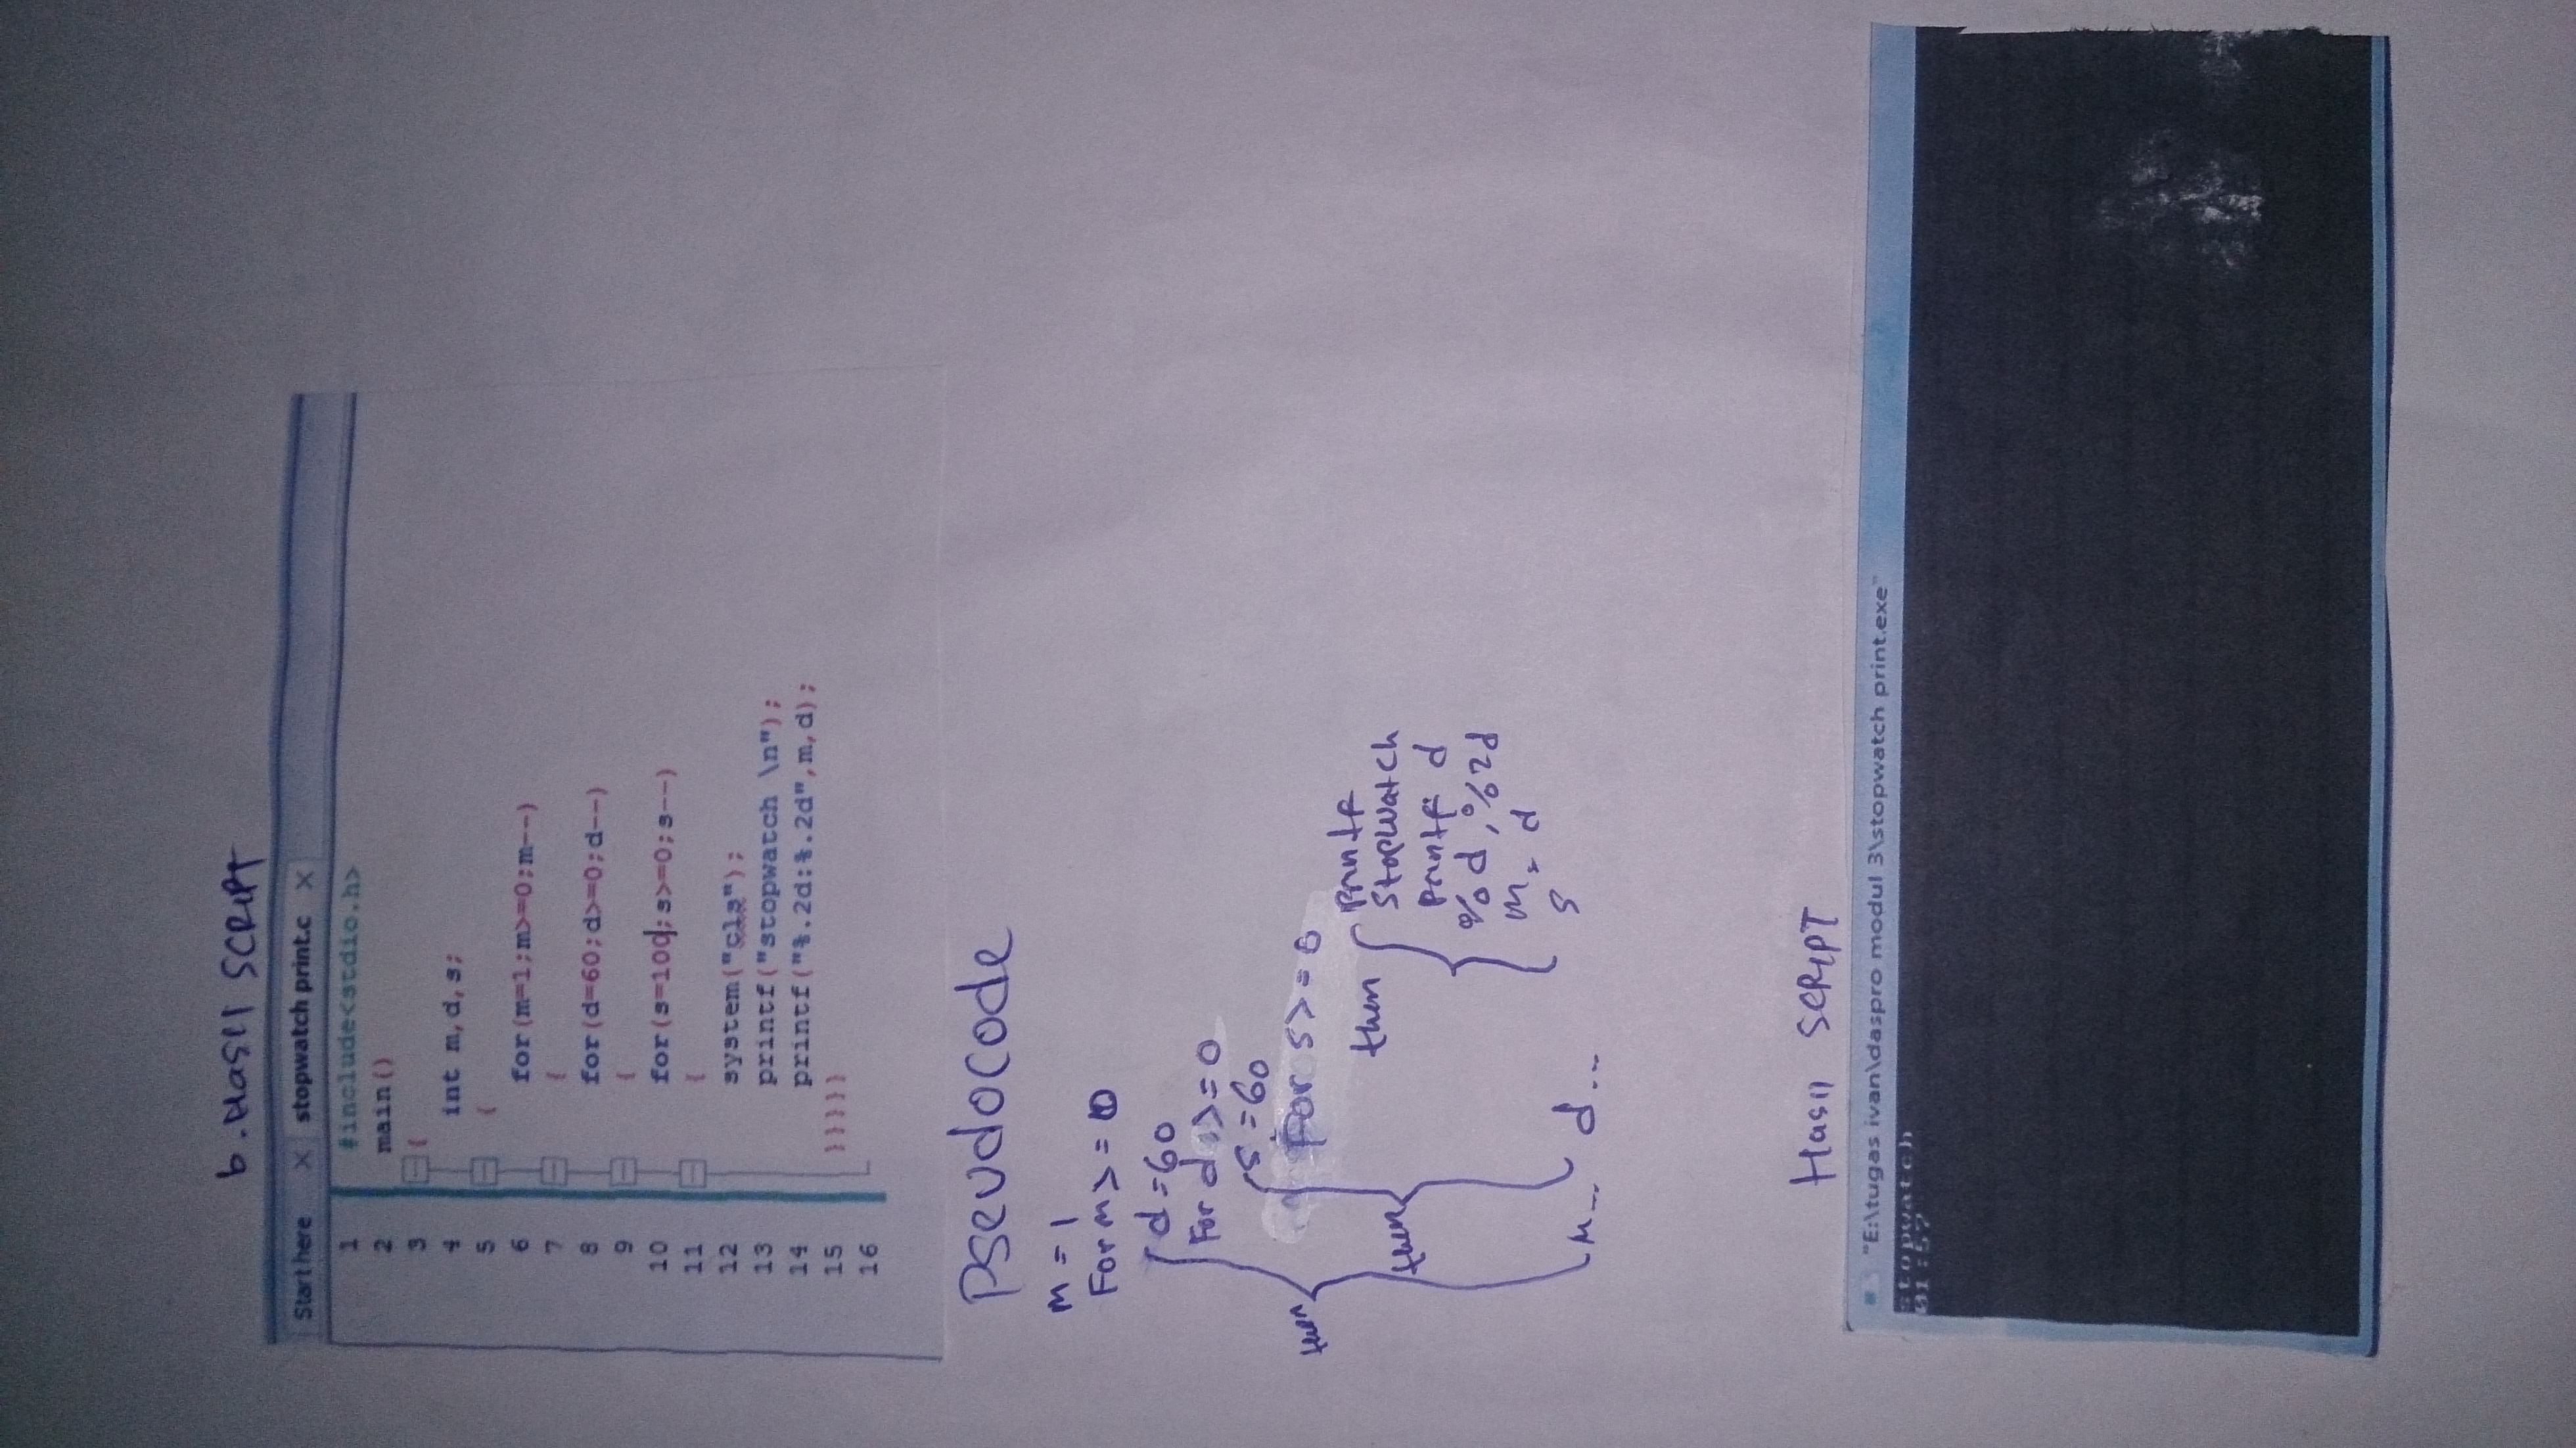 b. Hasil SCRIPT
Start here × stopwatch print.c ×
1 #include<stdio.h>
2 main()
3 {
4 int m,d,s;
5 {
6 for(m=1;m>=0;m--)
7 {
8 for(d=60;d>=0;d--)
9 {
10 for(s=100;s>=0;s--)
11 {
12 system("cls");
13 printf("stopwatch \n");
14 printf("%.2d:%.2d",m,d);
15 }}}}}
16
Pseudocode
m = 1
For m >= 0
d = 60
For d >= 0
s = 60
For s >= 0
then
then
then
printf
stopwatch
printf d
%d, %2d
m, d
s
m-- d--
Hasil SCRIPT
"E:\tugas ivan\daspro modul 3\stopwatch print.exe"
stopwatch
01:57